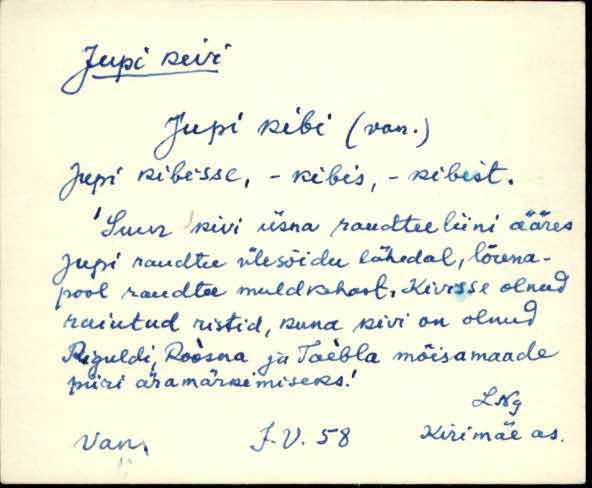 Jupi kivi
Jupi kibi (van.)
Jupi kibisse, - kibis, - kibist.
'Suur kivi üsna raudteeliini ääres
Jupi raudtee ülesõidu lähedal, lõuna-
pool raudtee muldkehast. Kivisse olnud
raiutud ristid, kuna kivi on olnud
Riguldi, Roosna ja Taebla mõisamaade
piiri äramärkimiseks.'
LNg
Van. J.V. 58 Kirimäe as.